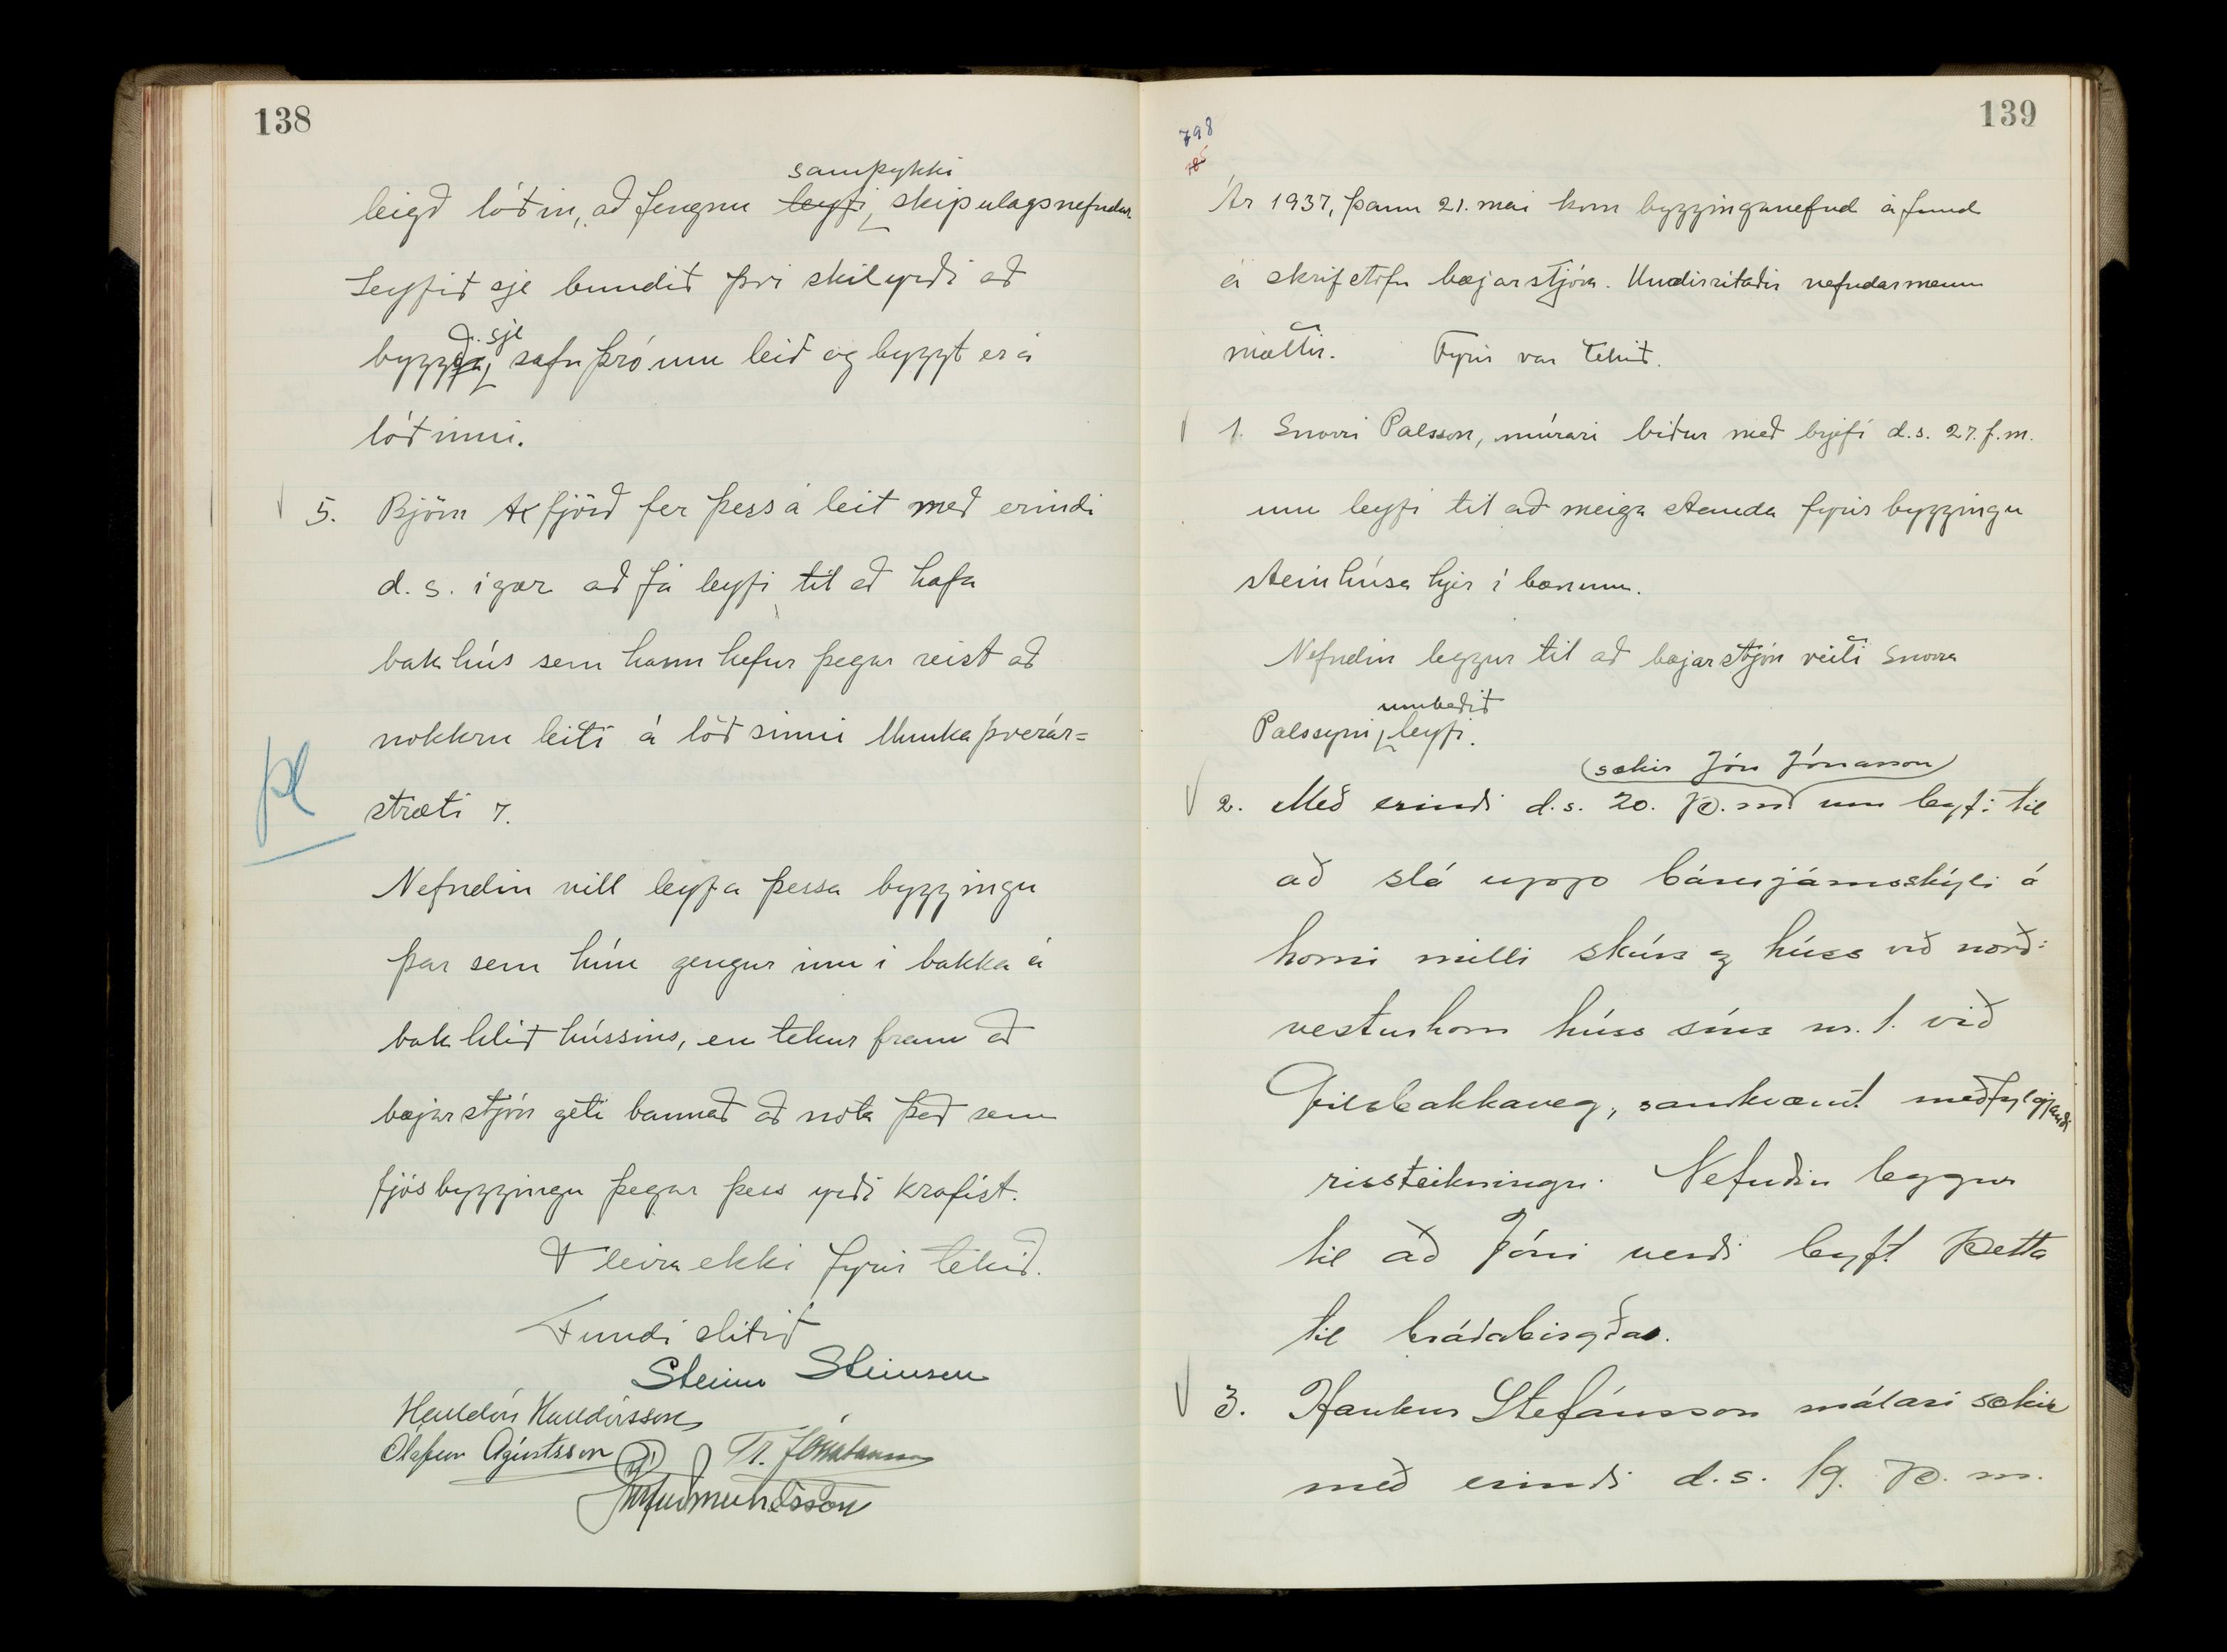 138
samþykki
leigð lóðin, að fengnu leyfi, skipulagsnefndar
Leyfið sje bundið því skilyrði að
ð sje
byggða, safnþró um leið og byggt er á
lóðinni.
5. Björn Axfjörð fer þess á leit með erindi
d. s. í gær að fá leyfi til að hafa
bakhús sem hann hefur þegar reist að
nokkru leiti á lóð sinni Munkaþverár=
stræti 7.
Nefndin vill leyfa þessa byggingu
þar sem hún gengur inn í bakka á
bakhlið hússins, en tekur fram að
bæjarstjórn geti bannað að nota það sem
fjósbyggingu þegar þess yrði krafist.
Fleira ekki fyrir tekið.
Fundi slitið
Steinn Steinsen
Halldór Halldórsson
Ólafur Ágústsson Tr. Jónatansson
139
798
Ár 1937, þann 21. mai kom bygginganefnd á fund
á skrifstofu bæjarstjóra. Undirritaðir nefndarmenn
mættir. Fyrir var tekið.
1. Snorri Palsson, múrari biður með brjefi d.s. 27. f.m.
um leyfi til að meiga standa fyrir byggingu
steinhúsa hjer í bænum.
Nefndin leggur til að bæjarstjórn veiti Snorra
umbeðið
Palssyni, leyfi.
(sækir Jón Jónasson)
2. Með erindi d.s. 20. þ.m. um leyfi til
að slá upp bárujárnsskýli á
horni milli skúrs og húss við norð-
vesturhorn húss síns nr. 1. við
Gilsbakkaveg, samkvæmt meðfylgjandi
rissteikningu. Nefndin leggur
til að Jóni verði leyft þetta
til bráðabirgða.
3. Haukur Stefánsson málari sækir
með erindi d.s. 19. þ. m.